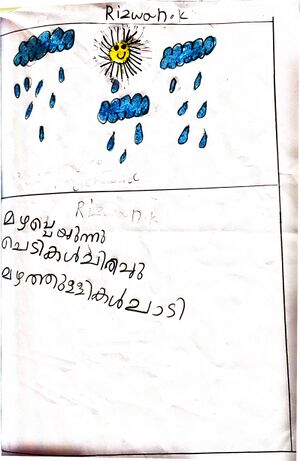 Rizwan.k
Rizwan.k
മഴപ്പെയുന്നു
ചെടികൾചിരിച്ചു
മഴത്തുള്ളികൾചാടി